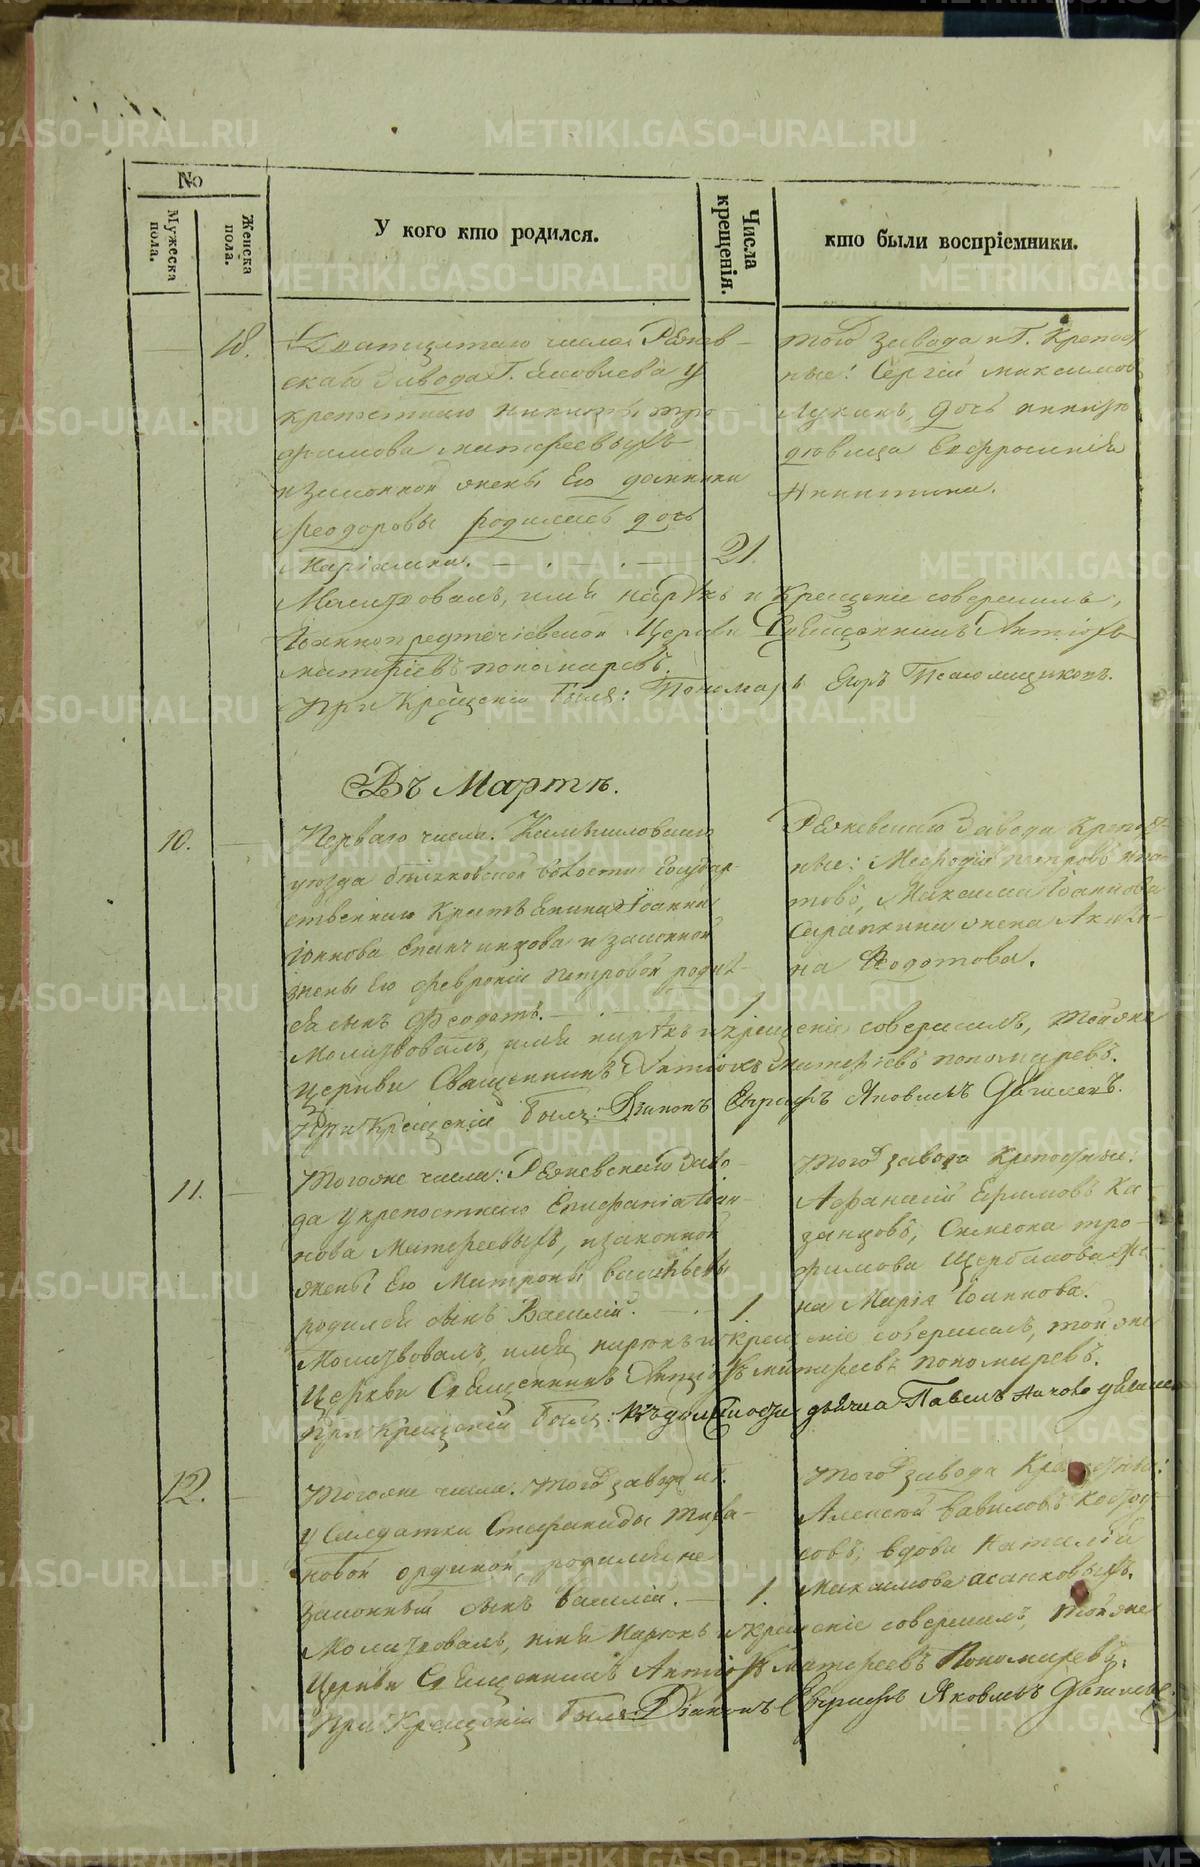 №
Мужеска пола.
Женска пола.
У кого кто родился.
Числа крещенія.
кто были воспріемники.
18.
Дватцатаго числа Режев-
скаго Завода Г. Яковлева у
крепостнаго Никиты Тро-
фимова Матфеевыхъ
и законной жены Его Домники
Феодоровы родилась дочь
Маріамна.
21.
того завода и Г. Крепост
ные: Сергій Максимов
Лукинъ, дочь
девица Евфросинія
Никитина.
Молитвовалъ, имя нарѣкъ и Крещеніе совершилъ,
Іоаннопредтечіевской Церкви Священникъ Антіохъ
Матфіевъ Пономаревъ.
При Крещеніи былъ: Пономарь Егоръ Псаломщиковъ.
Въ Мартѣ.
10.
Перваго числа. Камышловскаго
уезда волости Государ
ственнаго Крестьянина Іоанна
Іоннова Епанчинцова и законной
жены Его Февроніи Петровой родил-
ся сынъ Феодотъ.
1.
Режевскаго Завода Крепост-
ные: Мефодій Петровъ
Максима Іоаннова
Сараткина жена Акили-
на Федотова.
Молитвовалъ, имя нарѣкъ и крещеніе совершилъ, тойже
Церкви Священникъ Антіохъ Матфіевъ Пономаревъ.
При Крещеніи былъ: Діаконъ Яковлевъ
11.
Тогоже числа: Режевскаго Заво-
да у крепостнаго Епифанія Іоан-
нова Матфеевыхъ, и законной
жены Его Матроны Васильевы
родился сынъ Василій.
1.
Того завода Крепостные:
Афанасій Ефимовъ Ка
занцовъ, Симеона Тро-
фимова Щербакова же-
на Марія Іоаннова.
Молитвовалъ, имя нарекъ и крещеніе совершилъ, той же
Церкви Священникъ Антіохъ Матфеевъ Пономаревъ.
При крещеніи былъ: въ должности дьячка Павелъ
12.
Тогоже числа. Того завода и Г.
у Салдатки Стефаниды
новой родился не
законный сынъ Василій.
1.
Того завода Крепостные:
Алексій Вавиловъ
вдова Наталія
Максимова
Молитвовалъ, имя Нарекъ и Крещеніе совершилъ, той же
Церкви Священникъ Антіохъ Матфеевъ Пономаревъ.
При Крещеніи былъ: Діаконъ Яковлевъ
METRIKI.GASO-URAL.RU